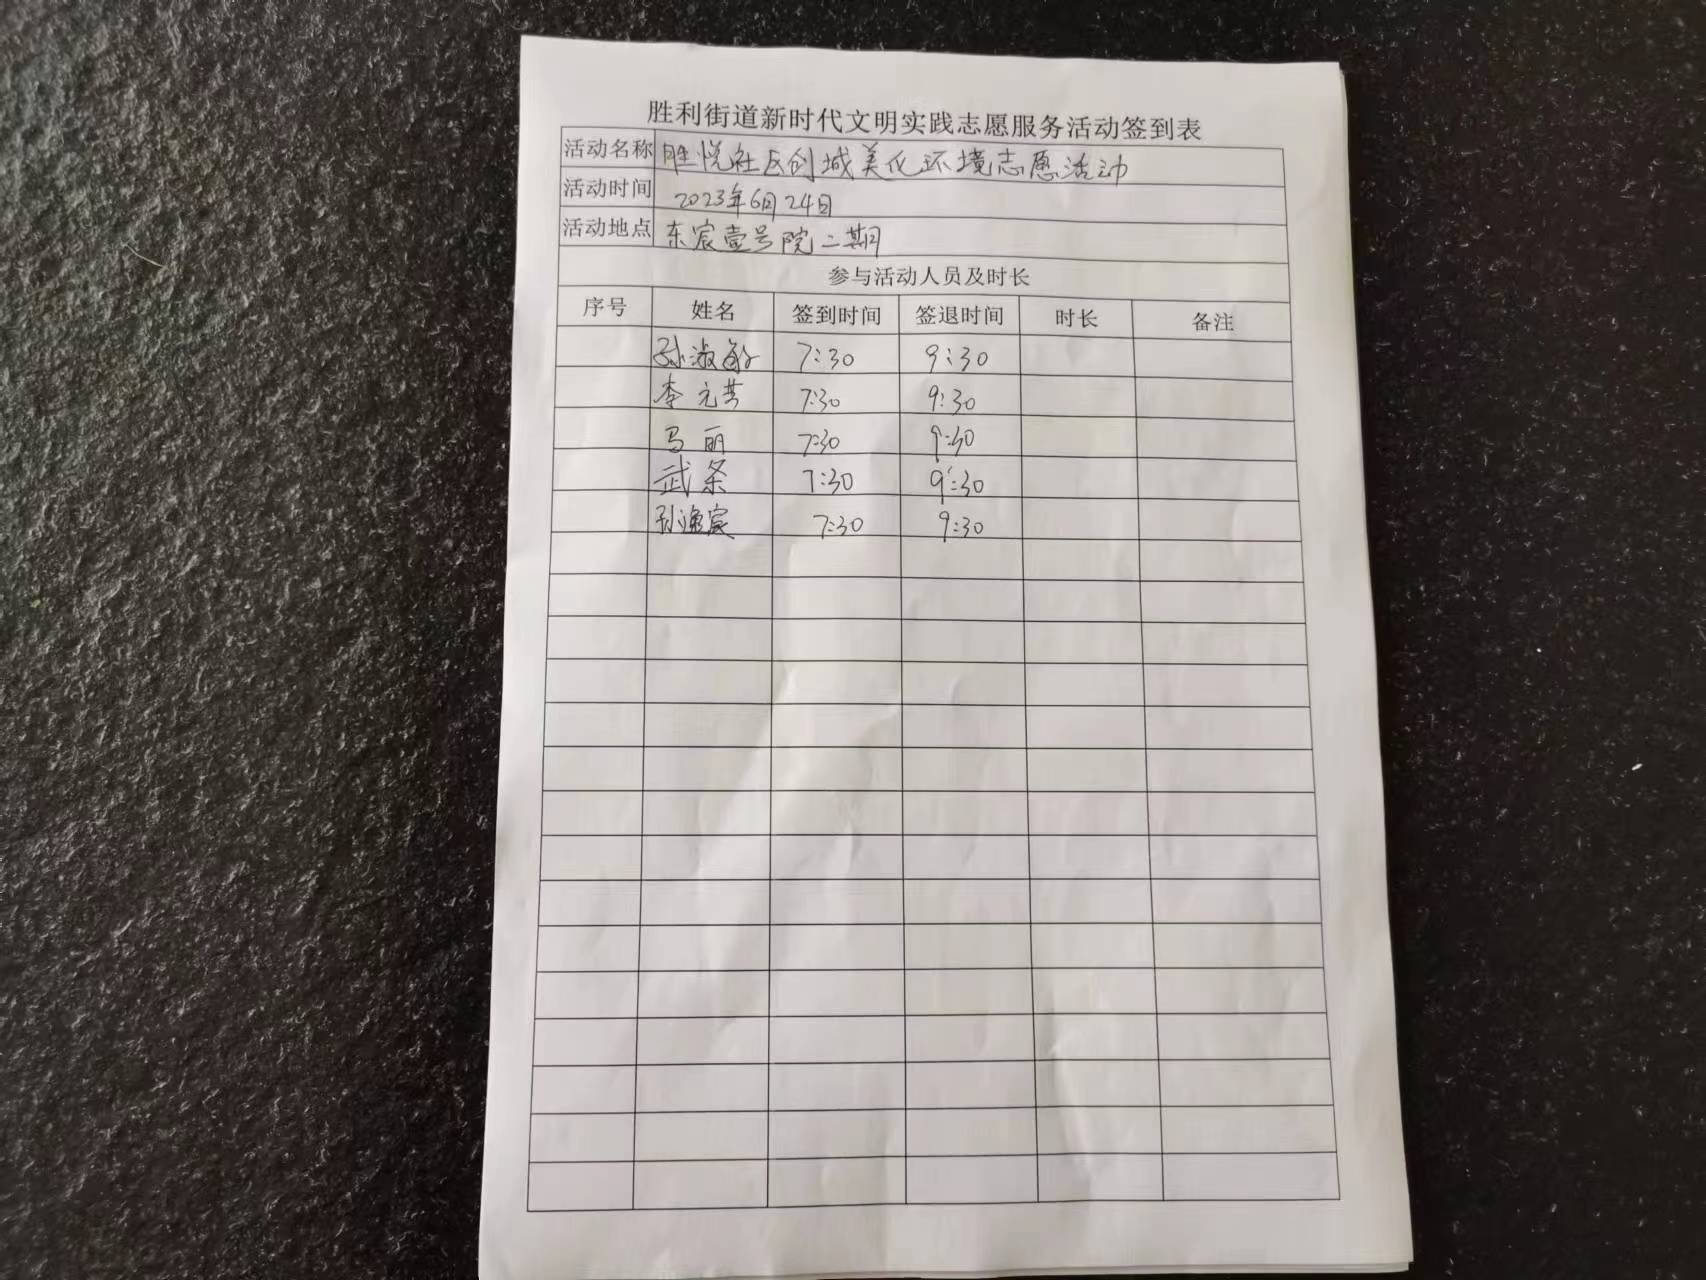 胜利街道新时代文明实践志愿服务活动签到表
活动名称 胜悦社区创城美化环境志愿活动
活动时间 2023年6月24日
活动地点 东宸壹号院二期
参与活动人员及时长
序号 姓名 签到时间 签退时间 时长 备注
孙淑敏 7:30 9:30
李元芸 7:30 9:30
马丽 7:30 9:30
武条 7:30 9:30
孙逸宸 7:30 9:30